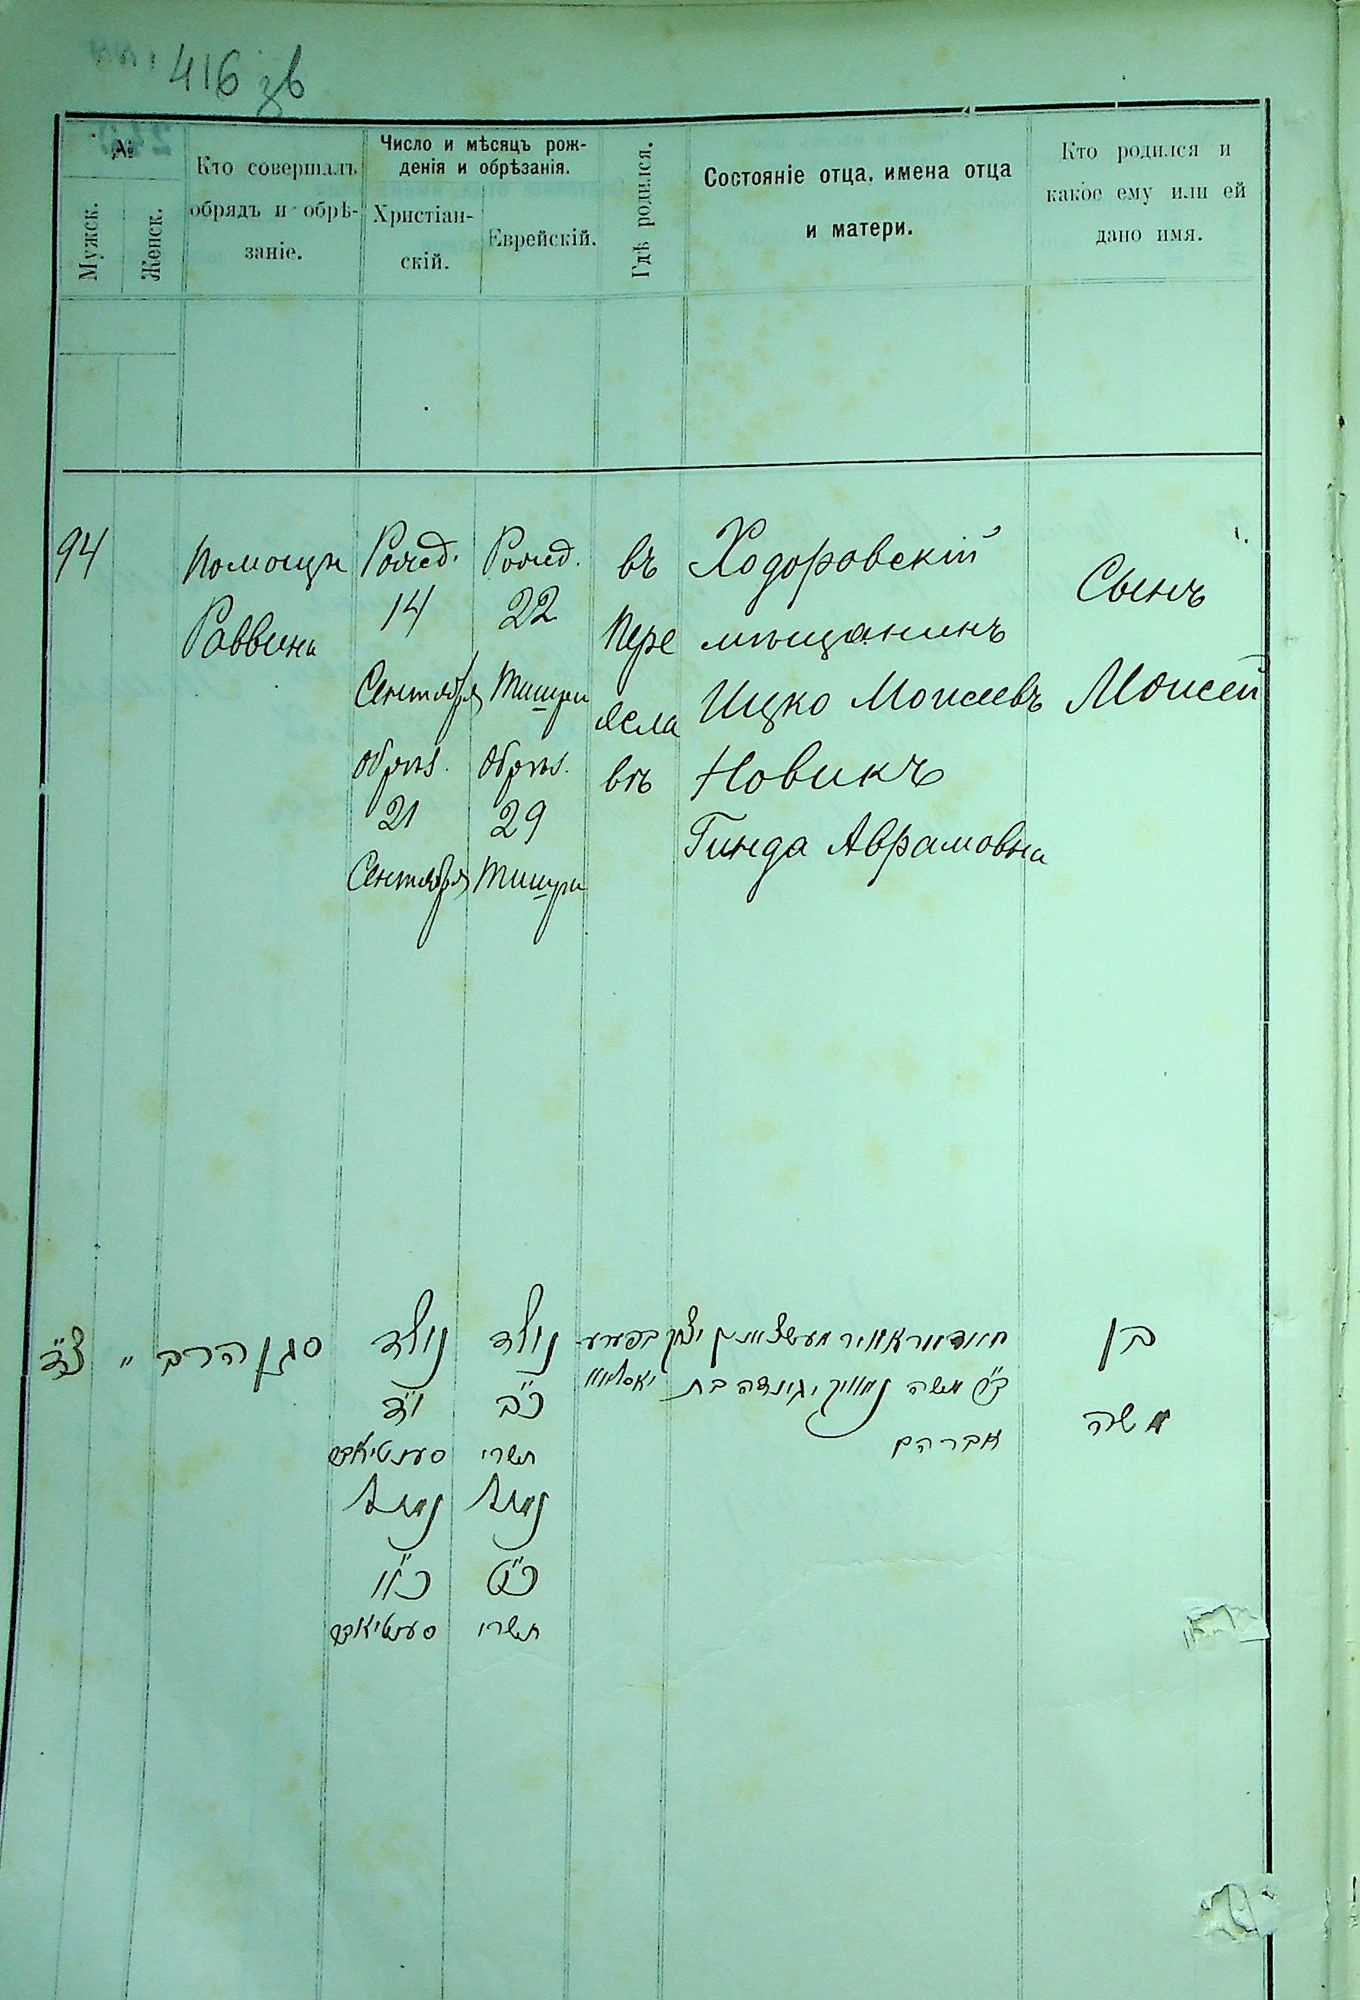 416 зв
№
Мужск.
Женск.
Кто совершалъ
обрядъ и обрѣ-
заніе.
Число и мѣсяцъ рож-
денія и обрѣзанія.
Христіан-
скій.
Еврейскій.
Гдѣ родился.
Состояніе отца, имена отца
и матери.
Кто родился и
какое ему или ей
дано имя.
94
Помощн
Раввина
Рожд.
14
Сентября
Обрѣз.
21
Сентября
Рожд.
22
Тишри
Обрѣз.
29
Тишри
въ
Пере
ясла
вѣ
Ходоровскій
мѣщанинъ
Ицко Моисеевъ
Новикъ
Гинда Аврамовна
Сынъ
Моисей
צ״ד
"
סגן הרב
נולד
י״ד
סענטיאבר
נמול
כ״א
סענטיאבר
נולד
כ״ב
תשרי
נמול
כ״ט
תשרי
בפערע
יאסלאוו
יצחק
ב״ר משה נאוויק וגינדה בת
אברהם
בן
משה